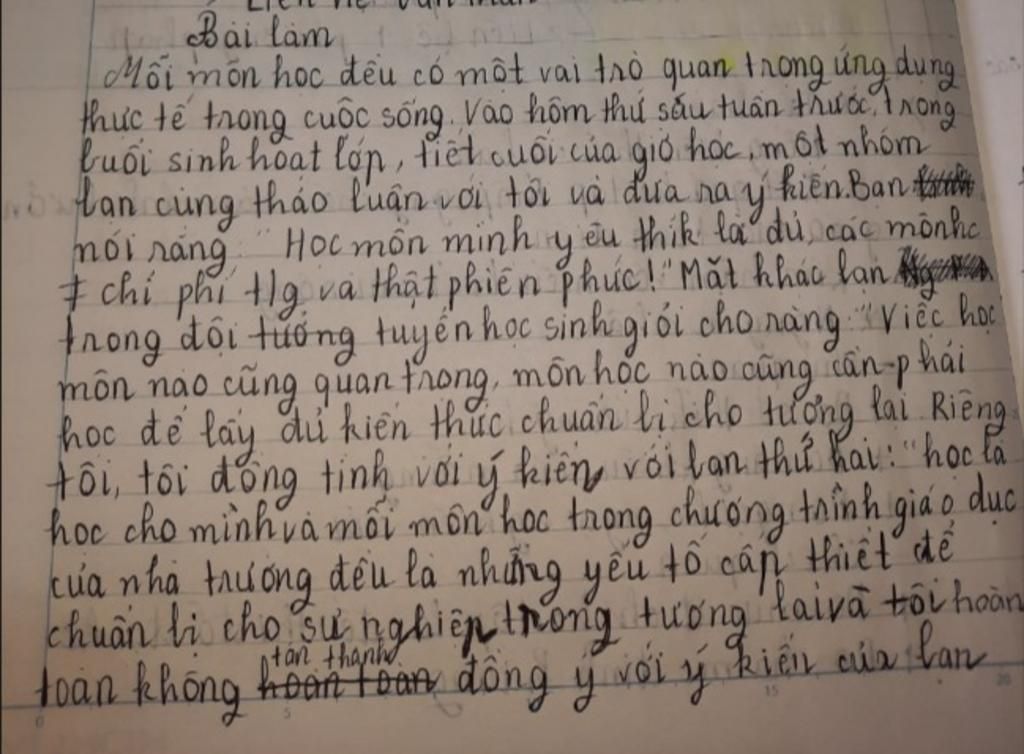 Bài làm
Mỗi môn học đều có một vai trò quan trọng ứng dụng
thực tế trong cuộc sống. Vào hôm thứ sáu tuần trước, trong
buổi sinh hoạt lớp, tiết cuối của giờ học, một nhóm
bạn cùng thảo luận với tôi và đưa ra ý kiến. Bạn
nói rằng "Học môn mình yêu thík là đủ, các môn hc
≠ chỉ phí tlg và thật phiền phức!" Mặt khác bạn
trong đội tướng tuyển học sinh giỏi cho rằng: "Việc học
môn nào cũng quan trọng, môn học nào cũng cần phải
học để lấy đủ kiến thức chuẩn bị cho tương lai. Riêng
tôi, tôi đồng tình với ý kiến với bạn thứ hai: "học là
học cho mình và mỗi môn học trong chương trình giáo dục
của nhà trường đều là những yếu tố cấp thiết để
chuẩn bị cho sự nghiệp trong tương lai và tôi hoàn
tán thành
toàn không hoàn toàn đồng ý với ý kiến của bạn